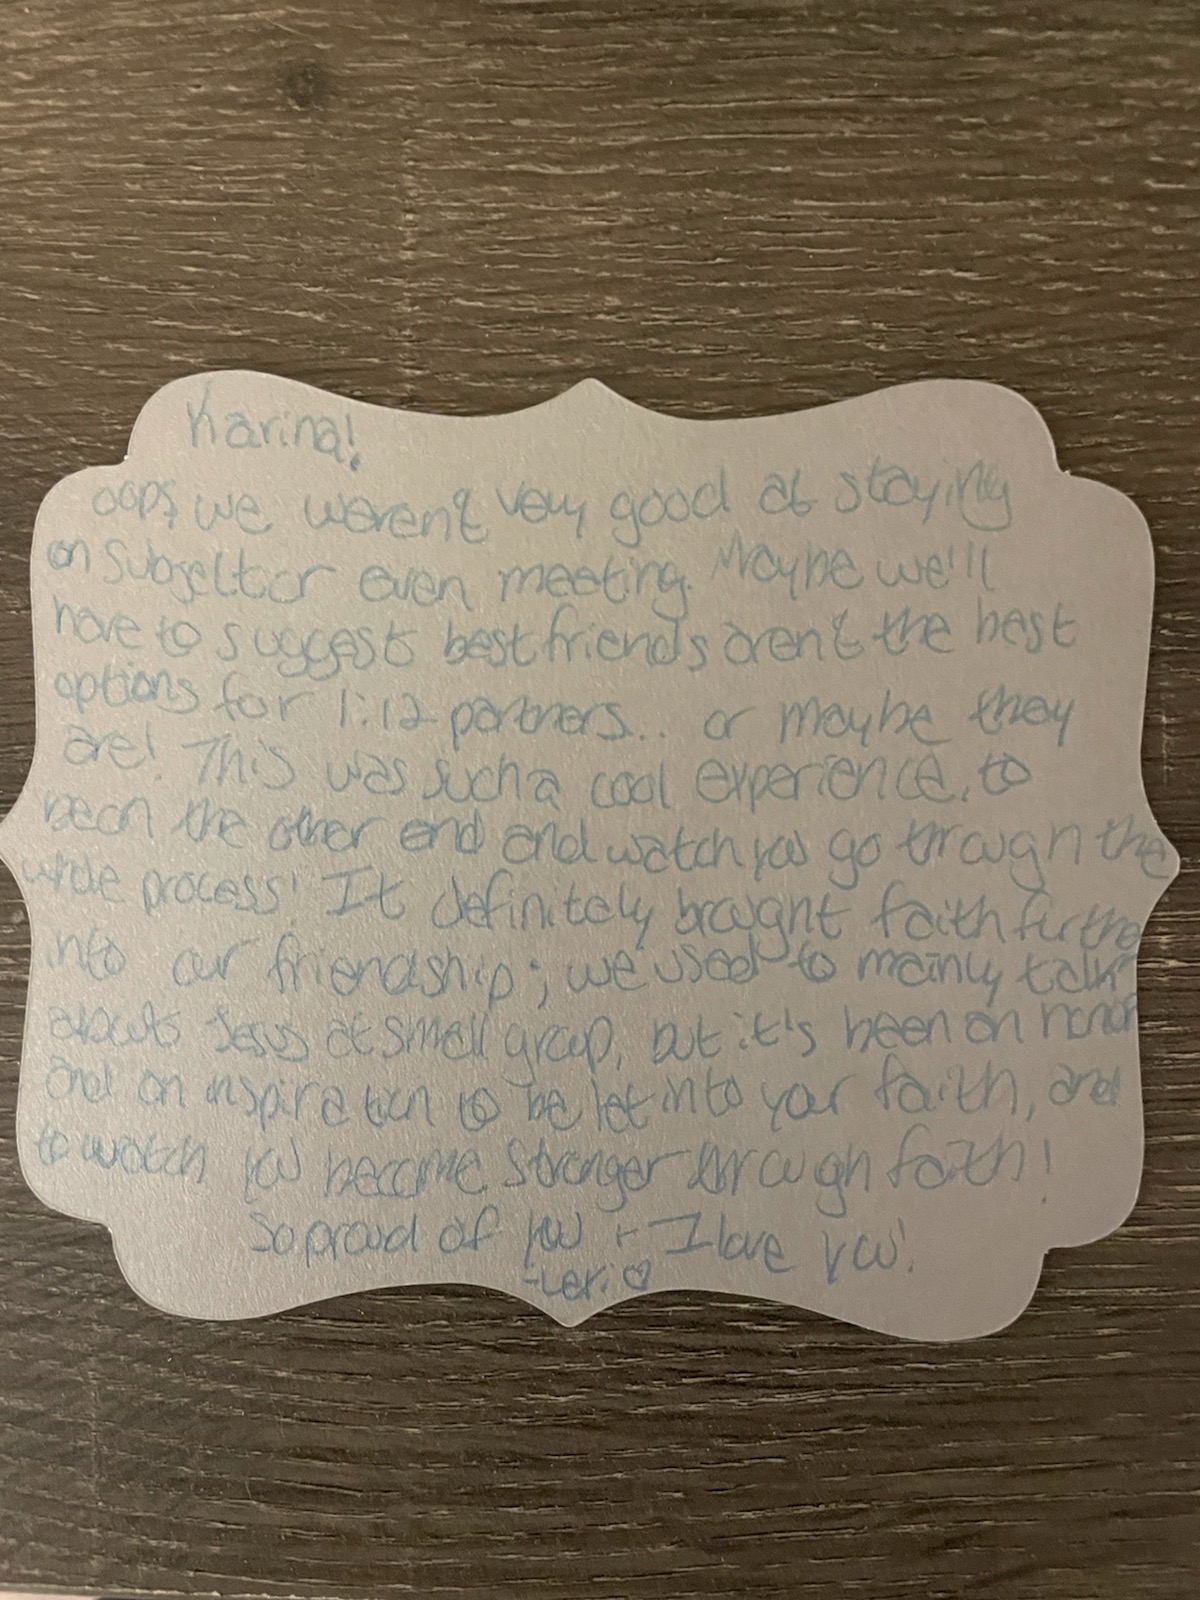 Karina!
oops we weren't very good at staying
on subject or even meeting. Maybe we'll
have to suggest best friends aren't the best
options for 1:12 partners... or maybe they
are! This was such a cool experience, to
be on the other end and watch you go through the
whole process! It definitely brought faith further
into our friendship; we used to mainly talk
about Jesus at small group, but it's been an honor
and an inspiration to be let into your faith, and
to watch you become stronger through faith!
So proud of you + I love you!
-Lexi ♡